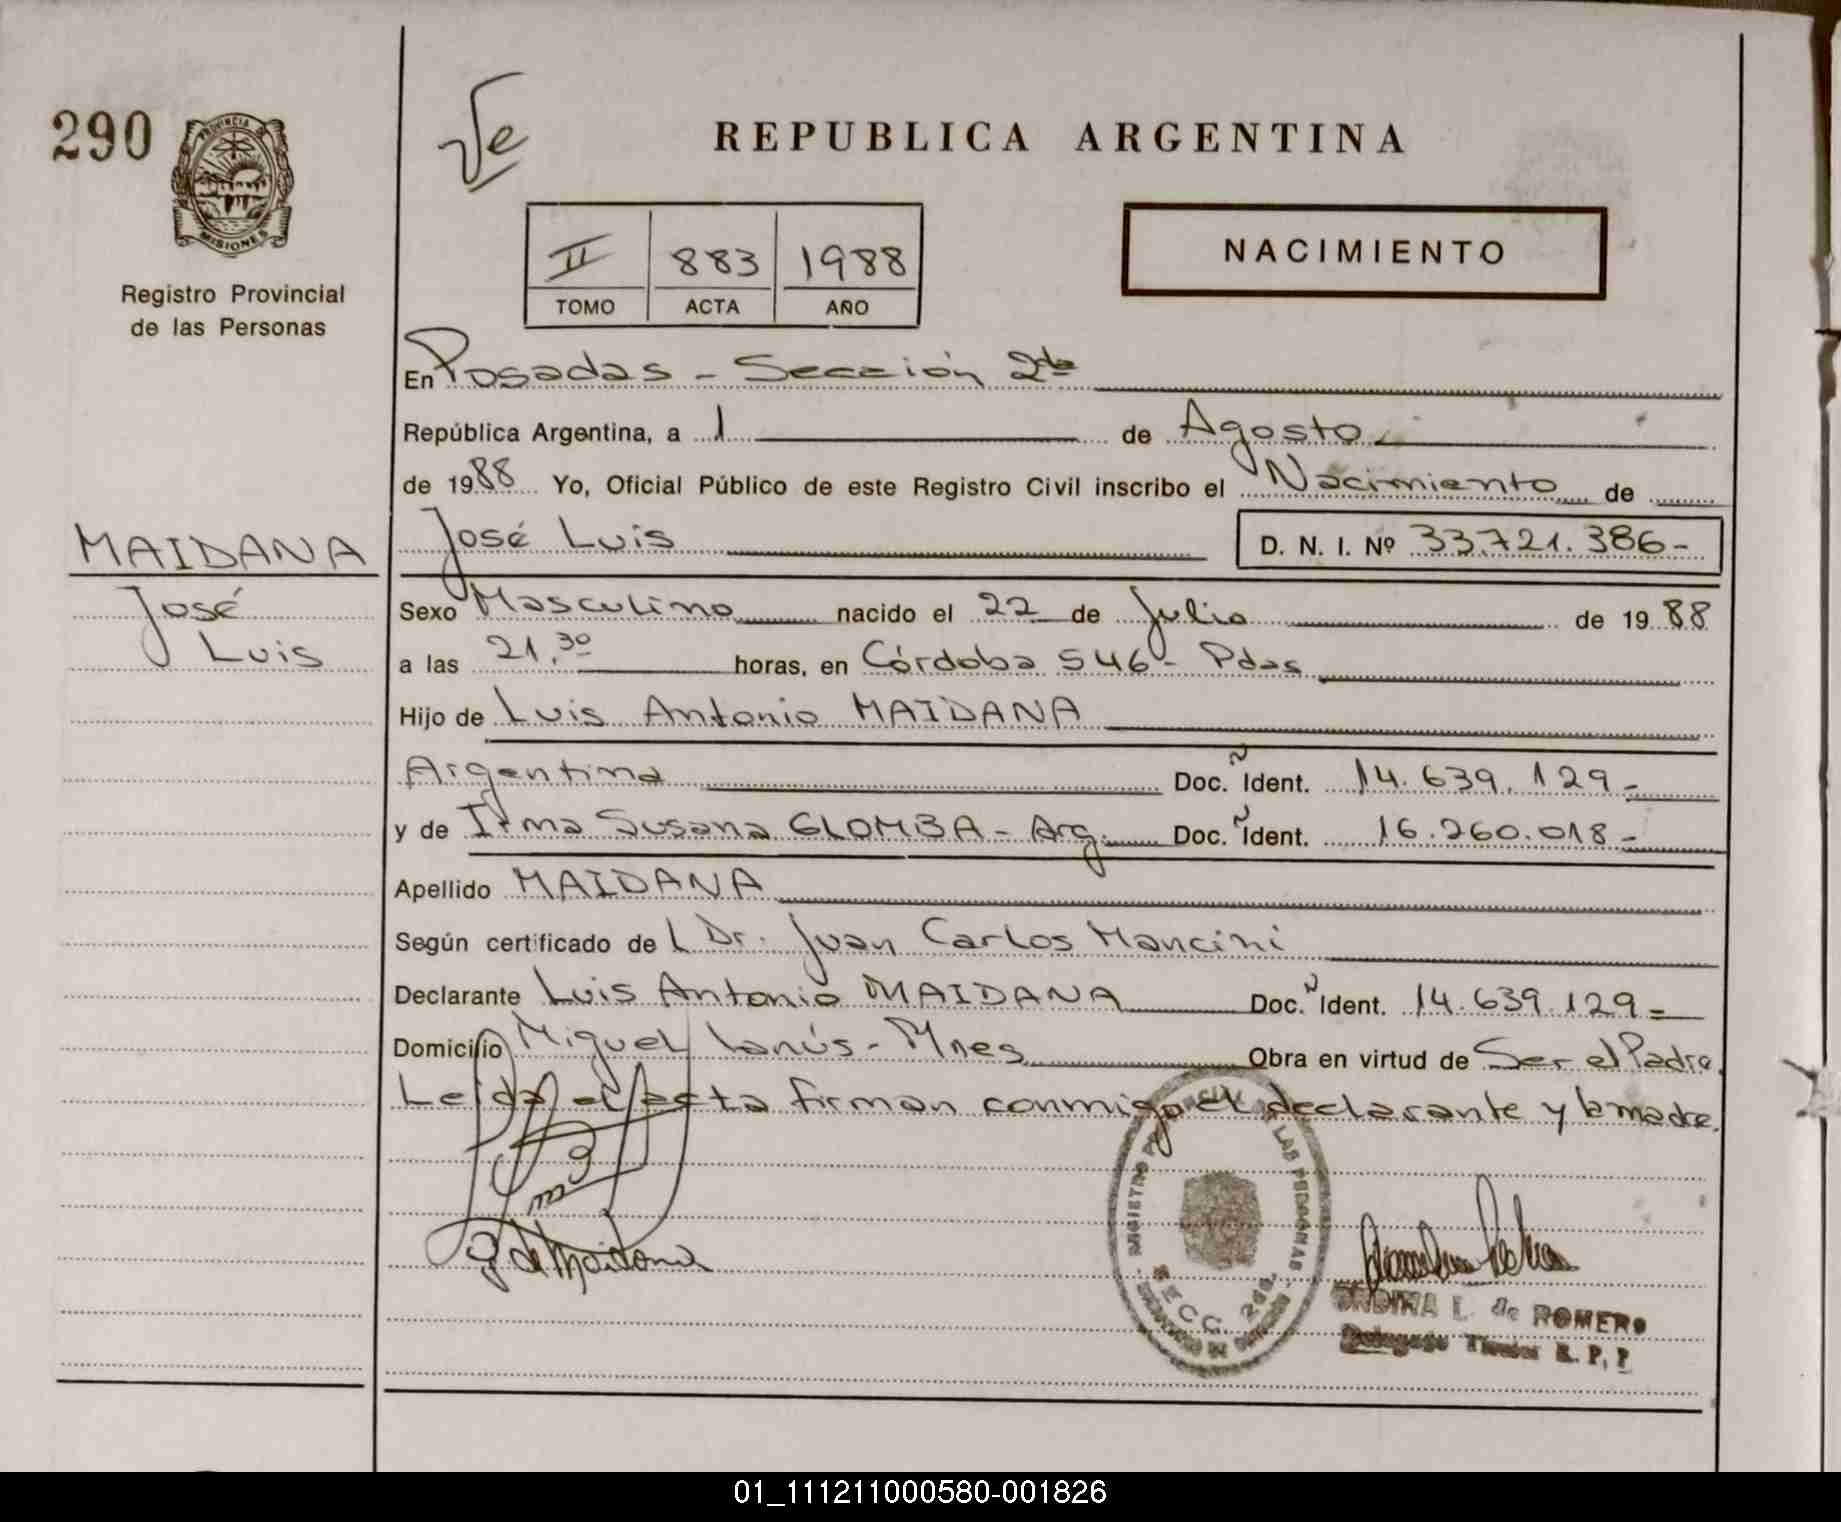 290
PROVINCIA DE
MISIONES
Registro Provincial
de las Personas
REPUBLICA ARGENTINA
NACIMIENTO
II 883 1988
TOMO ACTA AÑO
En Posadas - Sección 2da
República Argentina, a 1 de Agosto
de 1988 Yo, Oficial Público de este Registro Civil inscribo el Nacimiento de
MAIDANA
José
Luis
José Luis D. N. I. Nº 33.721.386-
Sexo Masculino nacido el 22 de Julio de 1988
a las 21,30 horas, en Córdoba 546 - Pdas
Hijo de Luis Antonio MAIDANA
Argentina Doc. Ident. 14.639.129-
y de Irma Susana GLOMBA - Arg. Doc. Ident. 16.260.018-
Apellido MAIDANA
Según certificado del Dr. Juan Carlos Mancini
Declarante Luis Antonio MAIDANA Doc. Ident. 14.639.129=
Domicilio Miguel Lanús - Mnes Obra en virtud de Ser el Padre.
Leida el acta firman conmigo el declarante y la madre.
G de Maidana
SECC. 2da.
L. de ROMERO
R. P. P
01_111211000580-001826